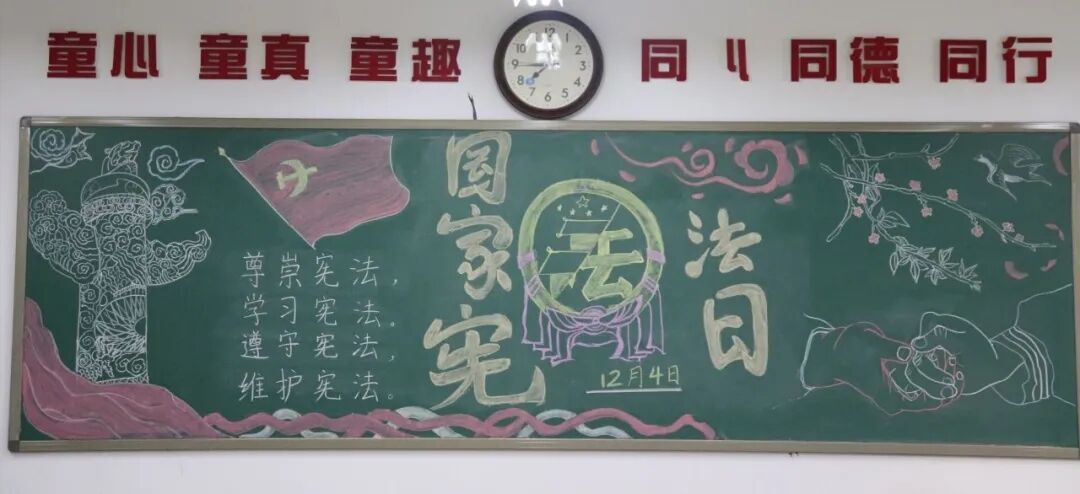 童心 童真 童趣
同 同德 同行
尊崇宪法,
学习宪法。
遵守宪法,
维护宪法。
国家宪
法
法日
12月4日